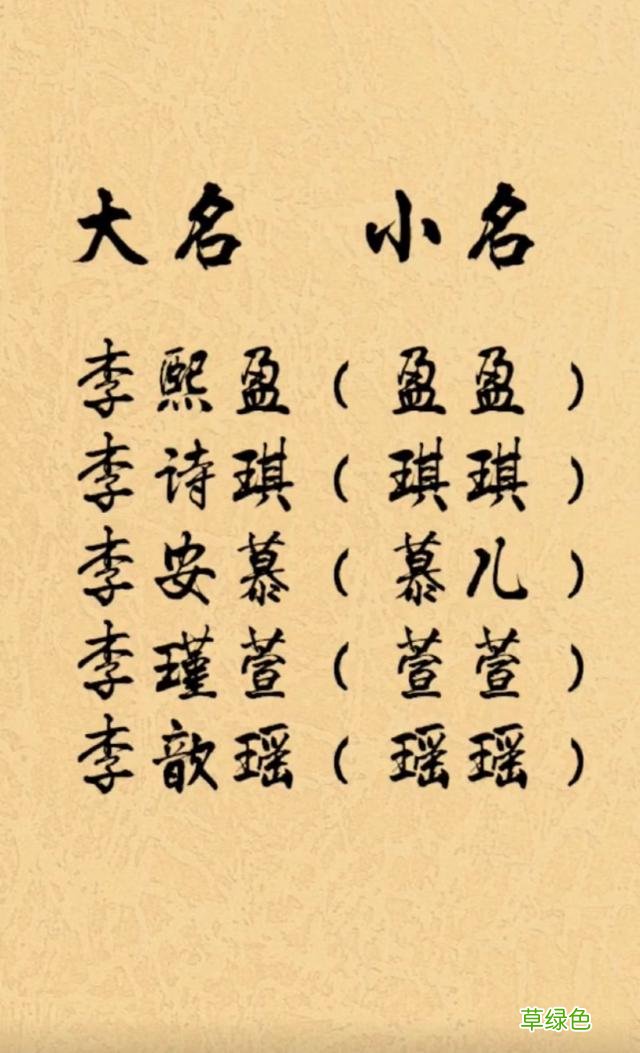 大名 小名
李熙盈(盈盈)
李诗琪(琪琪)
李安慕(慕儿)
李瑾萱(萱萱)
李歆瑶(瑶瑶)
草绿色